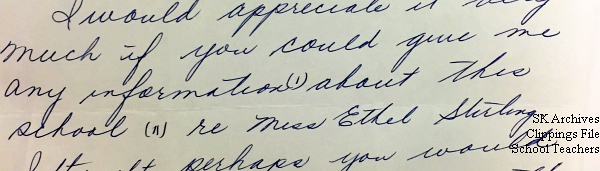 I would appreciate it very
much if you could give me
any information (1) about this
school (11) re Miss Ethel Stirling
perhaps you would
SK Archives
Clippings File
School Teachers